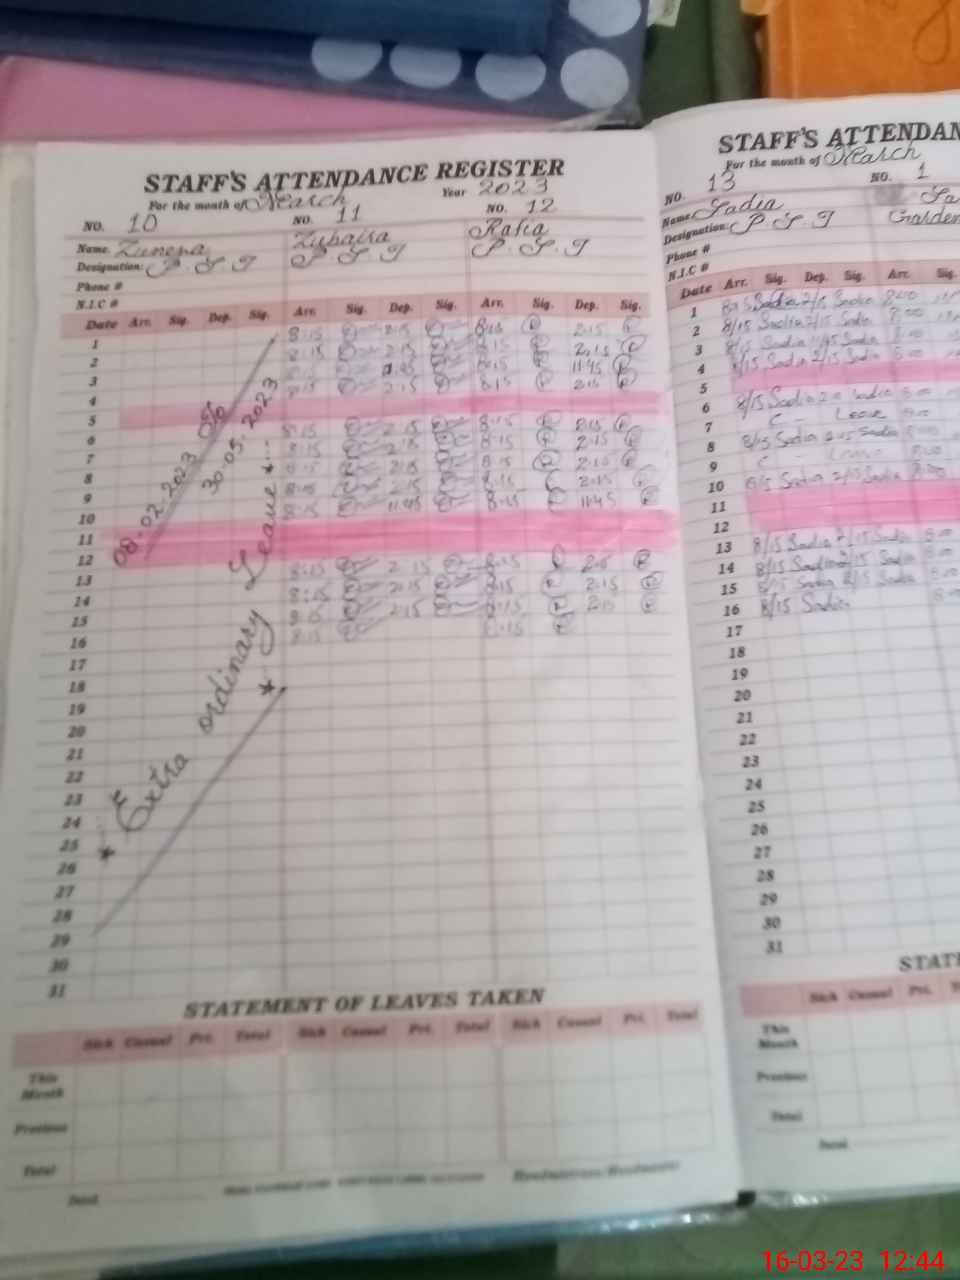 STAFF'S ATTENDANCE REGISTER
For the month of March Year 2023
NO. 10 NO. 11 NO. 12
Name. Zunena Zubaira Rafia
Designation: P.S.T P.S.T P.S.T
Phone #
N.I.C #
Date Arr. Sig. Dep. Sig. Arr. Sig. Dep. Sig. Arr. Sig. Dep. Sig.
1 8:15 2:15 8:15 R 2:15 R
2 8:15 2:15 8:15 R 2:15 R
3 8:15 11:45 8:15 R 11:45 R
4 8:15 2:15 8:15 R 2:15 R
5
6 8:15 2:15 8:15 R 2:15 R
7 8:15 2:15 8:15 R 2:15 R
8 8:15 2:15 8:15 R 2:15 R
9 8:15 2:15 8:15 2:15 R
10 8:15 11:45 8:15 R 11:45 R
11
12
13 8:15 2:15 8:15 2:15 R
14 8:15 2:15 8:15 R 2:15 R
15 8:15 2:15 8:15 R 2:15 R
16 8:15 8:15 R
17
18
19
20
21
22
23
24
25
26
27
28
29
30
31
08.02.2023
30.05.2023
* Extra ordinary Leave *
STATEMENT OF LEAVES TAKEN
Sick Casual Pri. Total Sick Casual Pri. Total Sick Casual Pri. Total
This Month
Previous
Total
STAFF'S ATTENDAN
For the month of March
NO. 13 NO. 1
Name Sadia Sa
Designation: P.S.T Garden
Phone #
N.I.C #
Date Arr. Sig. Dep. Sig. Arr. Sig.
1 8/15 Sadia 2/15 Sadia 8:00
2 8/15 Sadia 2/15 Sadia 8:00
3 8/15 Sadia 11/45 Sadia 8:00
4 8/15 Sadia 2/15 Sadia 8:00
5
6 8/15 Sadia Sadia 8:00
7 C - Leave 8:00
8 8/15 Sadia 2:15 Sadia 8:00
9 C - Leave 8:00
10 8/15 Sadia 2/15 Sadia 8:00
11
12
13 8/15 Sadia 2/15 Sadia 8:00
14 8/15 Sadia 2/15 Sadia 8:00
15 8/15 Sadia 2/15 Sadia 8:00
16 8/15 Sadia 8:00
17
18
19
20
21
22
23
24
25
26
27
28
29
30
31
STATE
Sick Casual Pri.
This Month
Previous
Total
16-03-23 12:44